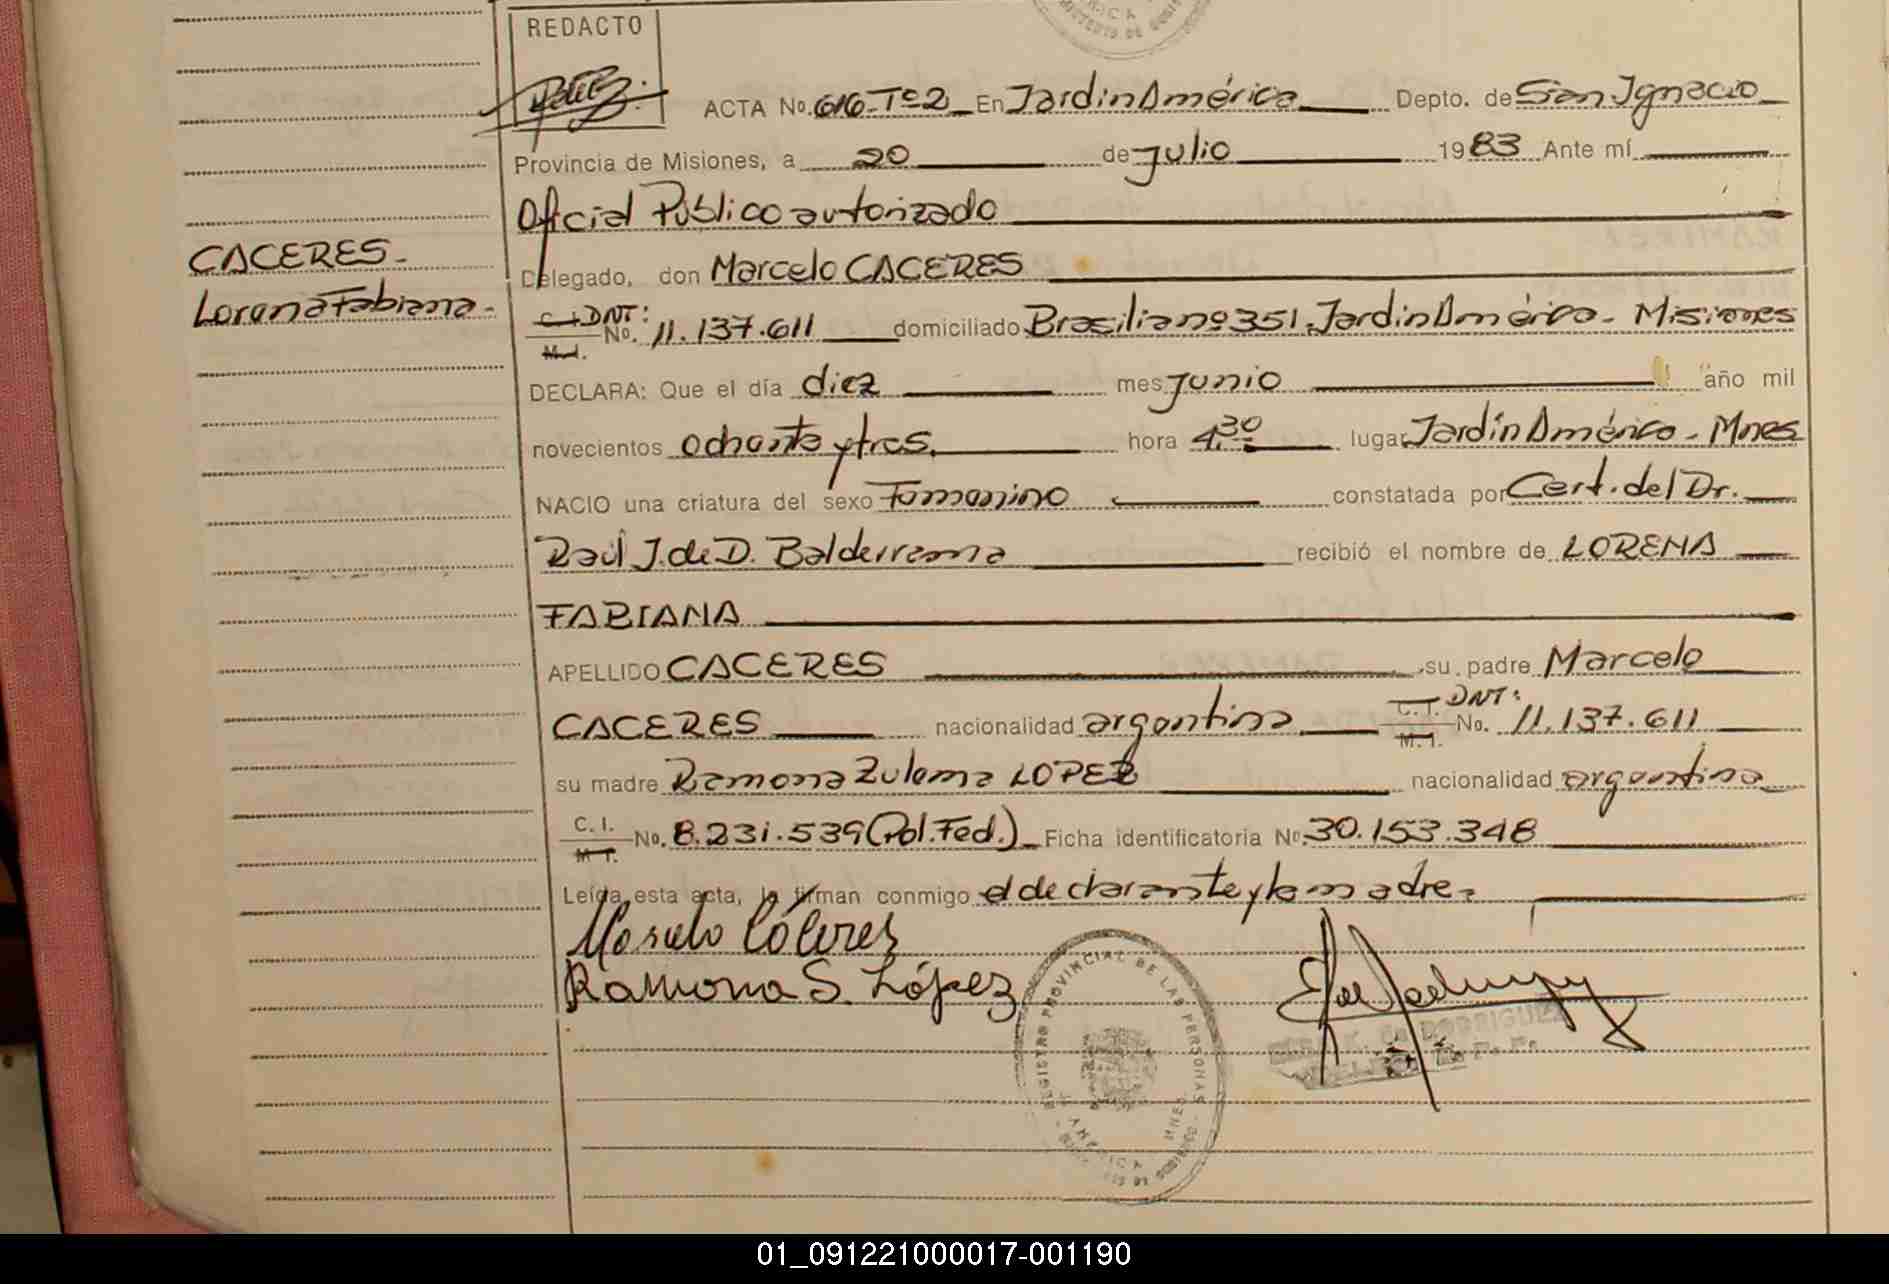 REDACTO
ACTA No. 616-Tº2 En Jardin América Depto. de San Ignacio
Provincia de Misiones, a 20 de julio 1983 Ante mí
Oficial Público autorizado
CACERES-
Delegado, don Marcelo CACERES
Lorena Fabiana-
C.I. DNI:
M.I. No. 11.137.611 domiciliado Brasilia nº 351, Jardin América - Misiones
DECLARA: Que el día diez mes junio año mil
novecientos ochenta y tres, hora 4,30 lugar Jardín América - Mnes
NACIO una criatura del sexo Femenino constatada por Cert. del Dr.
Raúl J. de D. Balderrama recibió el nombre de LORENA
FABIANA
APELLIDO CACERES su padre Marcelo
CACERES nacionalidad argentina C.I. DNI: M.I. No. 11.137.611
su madre Ramona Zulema LOPEZ nacionalidad argentina
C.I. M.I. No. 8.231.539 (Pol. Fed.) Ficha identificatoria No. 30.153.348
Leída esta acta, la firman conmigo el declarante y la madre.
Marcelo Cáceres
Ramona S. López
REGISTRO PROVINCIAL DE LAS PERSONAS
AMERICA MNES
DE RODRIGUEZ
01_091221000017-001190